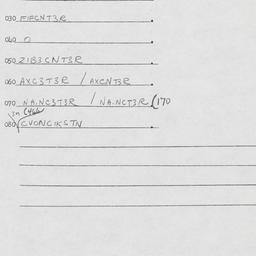 030 FIFCNT3R.
040 0.
050 21B3CNT3R
060 AXC3T3R / AXCNT3R.
070 NA.NC3T3R / NA.NCT3R (170
080 CVONCIKSTN.